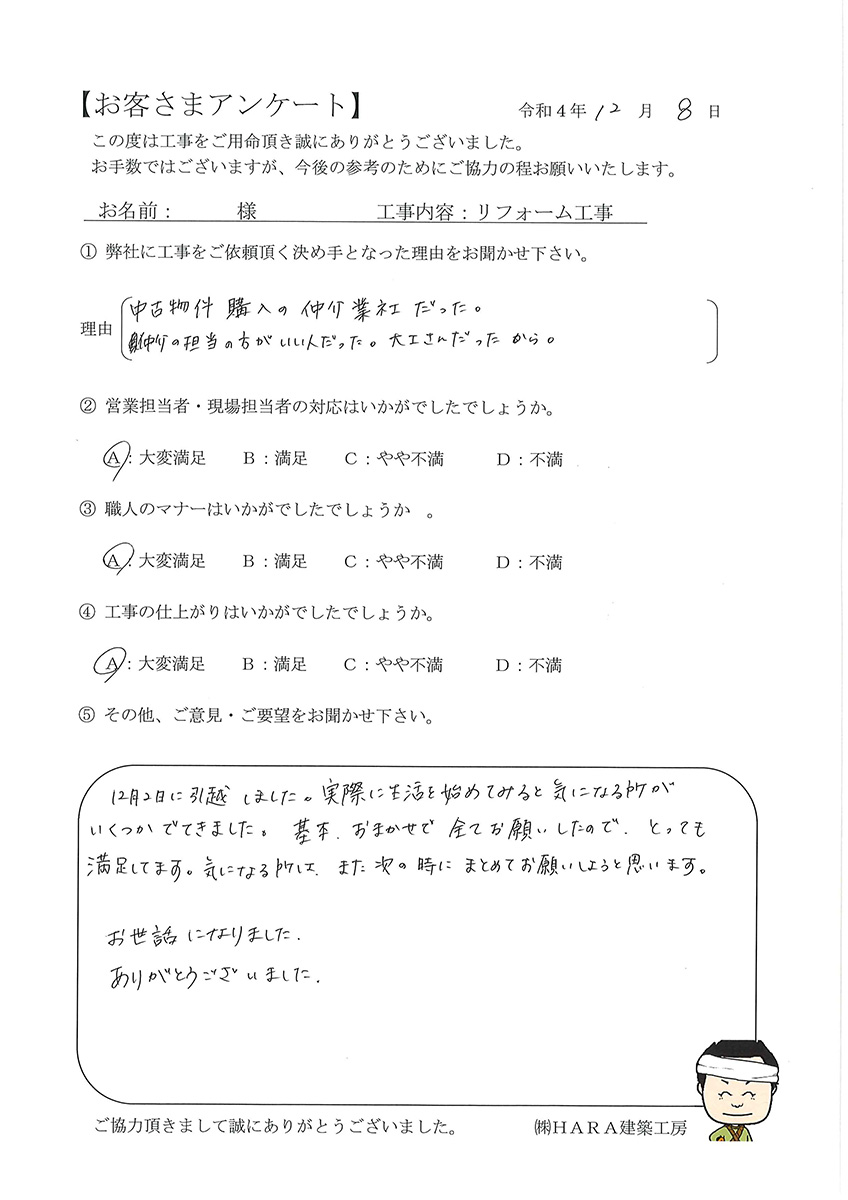 【お客さまアンケート】
令和４年 12 月 8 日
この度は工事をご用命頂き誠にありがとうございました。
お手数ではございますが、今後の参考のためにご協力の程お願いいたします。
お名前： 様 工事内容：リフォーム工事
① 弊社に工事をご依頼頂く決め手となった理由をお聞かせ下さい。
中古物件 購入の 仲介業社 だった。
理由
仲介の担当の方がいい人だった。大工さんだったから。
② 営業担当者・現場担当者の対応はいかがでしたでしょうか。
Ａ：大変満足 Ｂ：満足 Ｃ：やや不満 Ｄ：不満
③ 職人のマナーはいかがでしたでしょうか 。
Ａ：大変満足 Ｂ：満足 Ｃ：やや不満 Ｄ：不満
④ 工事の仕上がりはいかがでしたでしょうか。
Ａ：大変満足 Ｂ：満足 Ｃ：やや不満 Ｄ：不満
⑤ その他、ご意見・ご要望をお聞かせ下さい。
12月2日に引越しました。実際に生活を始めてみると気になる所が
いくつかでてきました。 基本、おまかせで 全てお願いしたので、とっても
満足してます。気になる所は、また次の時にまとめてお願いしようと思います。
お世話になりました。
ありがとうございました。
ご協力頂きまして誠にありがとうございました。
㈱ＨＡＲＡ建築工房